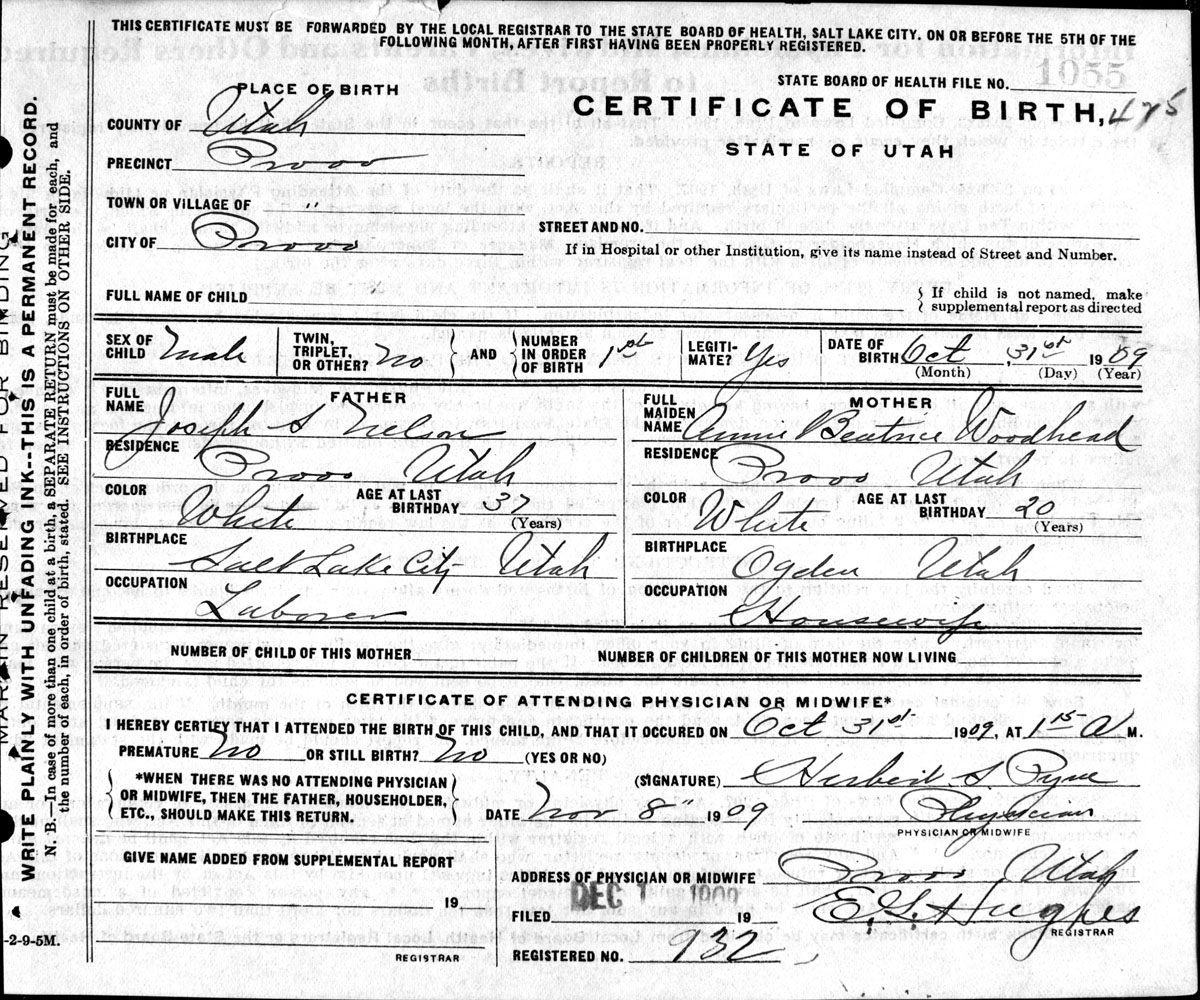 THIS CERTIFICATE MUST BE FORWARDED BY THE LOCAL REGISTRAR TO THE STATE BOARD OF HEALTH, SALT LAKE CITY. ON OR BEFORE THE 5TH OF THE
FOLLOWING MONTH, AFTER FIRST HAVING BEEN PROPERLY REGISTERED.
STATE BOARD OF HEALTH FILE NO. 1055
PLACE OF BIRTH
CERTIFICATE OF BIRTH, 475
STATE OF UTAH
COUNTY OF Utah
PRECINCT Provo
TOWN OR VILLAGE OF "
CITY OF Provo
STREET AND NO.
If in Hospital or other Institution, give its name instead of Street and Number.
FULL NAME OF CHILD
If child is not named, make
supplemental report as directed
SEX OF CHILD Male
TWIN, TRIPLET, OR OTHER? No
AND
NUMBER IN ORDER OF BIRTH 1st
LEGITI-MATE? Yes
DATE OF BIRTH Oct 31st 1909
(Month) (Day) (Year)
FATHER
FULL NAME Joseph S Nelson
RESIDENCE Provo Utah
COLOR White AGE AT LAST BIRTHDAY 37 (Years)
BIRTHPLACE Salt Lake City Utah
OCCUPATION Laborer
MOTHER
FULL MAIDEN NAME Annie Beatrice Woodhead
RESIDENCE Provo Utah
COLOR White AGE AT LAST BIRTHDAY 20 (Years)
BIRTHPLACE Ogden Utah
OCCUPATION Housewife
NUMBER OF CHILD OF THIS MOTHER
NUMBER OF CHILDREN OF THIS MOTHER NOW LIVING
CERTIFICATE OF ATTENDING PHYSICIAN OR MIDWIFE*
I HEREBY CERTIFY THAT I ATTENDED THE BIRTH OF THIS CHILD, AND THAT IT OCCURED ON Oct 31st 1909, AT 1 15 A M.
PREMATURE No OR STILL BIRTH? No (YES OR NO)
*WHEN THERE WAS NO ATTENDING PHYSICIAN
OR MIDWIFE, THEN THE FATHER, HOUSEHOLDER,
ETC., SHOULD MAKE THIS RETURN.
(SIGNATURE) Herbert S. Pyne
DATE Nov 8" 1909
Physician
PHYSICIAN OR MIDWIFE
GIVE NAME ADDED FROM SUPPLEMENTAL REPORT
19
REGISTRAR
ADDRESS OF PHYSICIAN OR MIDWIFE Provo Utah
FILED DEC 1 1909 19
E. G. Hughes
REGISTRAR
REGISTERED NO. 932
MARGIN RESERVED FOR BINDING
WRITE PLAINLY WITH UNFADING INK--THIS IS A PERMANENT RECORD.
N. B.—In case of more than one child at a birth, a SEPARATE RETURN must be made for each, and
the number of each, in order of birth, stated. SEE INSTRUCTIONS ON OTHER SIDE.
-2-9-5M.